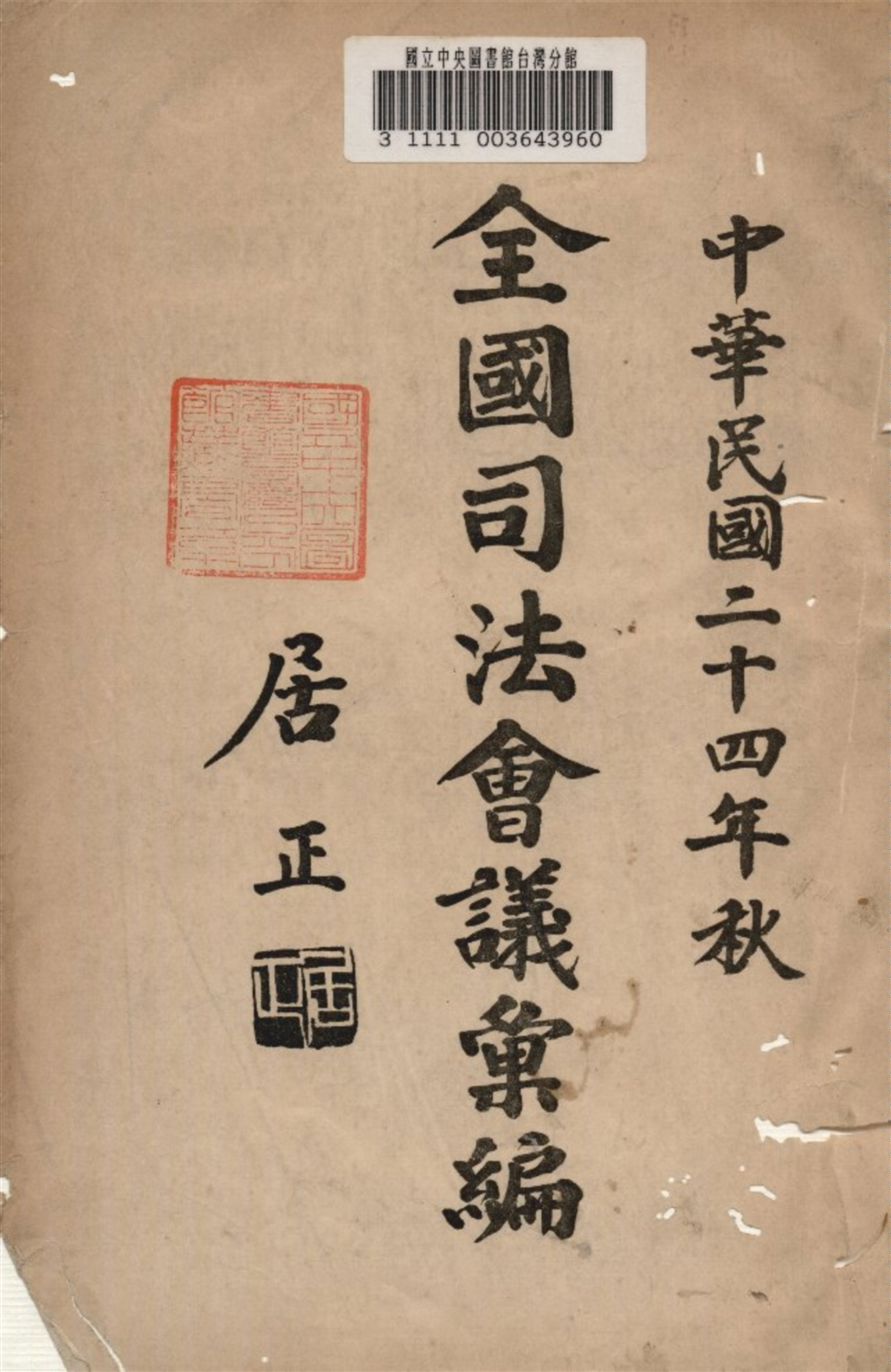 國立中央圖書館台灣分館
3 1111 003643960
中華民國二十四年秋
全國司法會議彙編
居正
居正